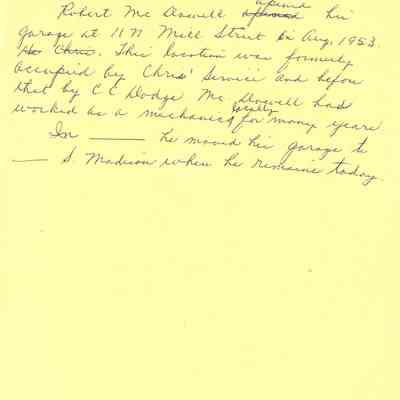 opened
Robert Mc Dowell opened his
garage at 11 N Mill Street in Aug. 1953.
to Chris. This location was formerly
occupied by Chris' Service and before
that by C C Dodge Mc Dowell has
locally
worked as a mechanic for many years
In ____ he moved his garage to
____ S. Madison when he remains today.